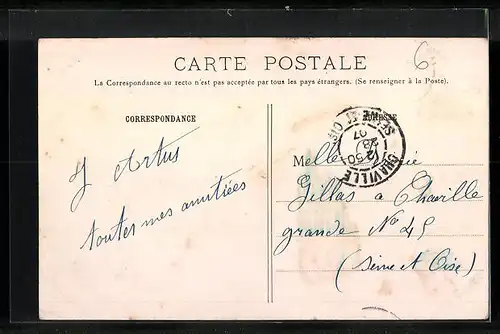 6
CARTE POSTALE
La Correspondance au recto n'est pas acceptée par tous les pays étrangers. (Se renseigner à la Poste).
CORRESPONDANCE
ADRESSE
J Artus
toutes mes amitiées
CHAVILLE
12 50
28
07
SEINE ET OISE
Melle
Gillas a Chaville
grande No 45
(Seine et Oise)